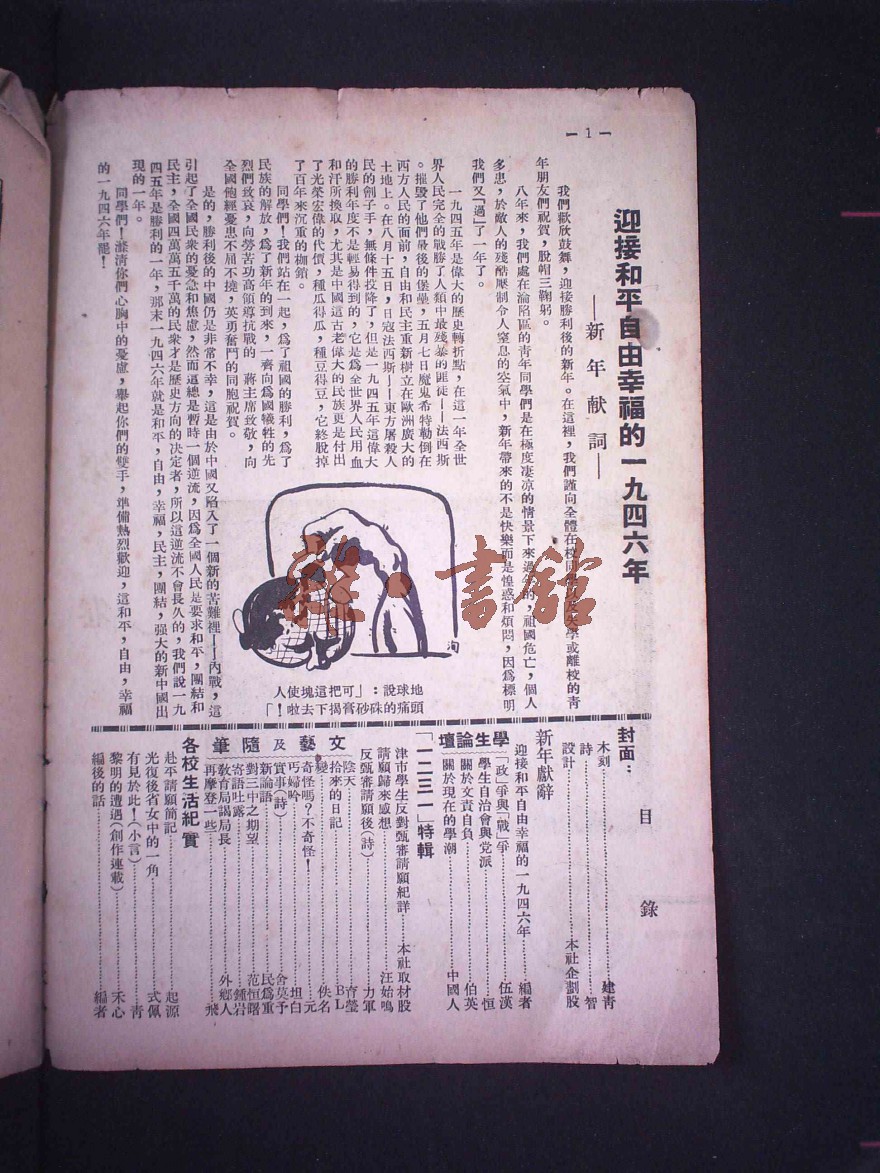 —1—
迎接和平自由幸福的一九四六年
—新年献詞—
我們歡欣鼓舞，迎接勝利後的新年。在這裡，我們謹向全體在校同學以及失學或離校的青
年朋友們祝賀，脫帽三鞠躬。
八年來，我們處在淪陷區的青年同學們是在極度凄凉的情景下來過年的，祖國危亡，個人
多患，於敵人的殘酷壓制令人窒息的空氣中，新年帶來的不是快樂而是惶惑和煩悶，因爲標明
我們又「過」了一年了。
一九四五年是偉大的歷史轉折點，在這一年全世
界人民完全的戰勝了人類中最殘暴的匪徒—法西斯
。摧毀了他們最後的堡壘，五月七日魔鬼希特勒倒在
西方人民的面前，自由和民主重新樹立在歐洲廣大的
土地上。在八月十五日，日寇法西斯—東方屠殺人
民的劊子手，無條件投降了，但是一九四五年這偉大
的勝利年度不是輕易得到的，它是爲全世界人民用血
和汗所換取，尤其是中國這古老偉大的民族更是付出
了光榮宏偉的代價，種瓜得瓜，種豆得豆，它終脫掉
了百年來沉重的枷鎖。
同學們！我們站在一起，爲了祖國的勝利，爲了
民族的解放，爲了新年的到來，一齊向爲國犧牲的先
烈們致哀，向勞苦功高領導抗戰的 蔣主席致敬，向
全國飽經憂患不屈不撓，英勇奮鬥的同胞祝賀。
是的，勝利後的中國仍是非常不幸，這是由於中國又陷入了一個新的苦難裡—內戰，這
引起了全國民衆的憂急和焦慮，然而這總是暫時一個逆流，因爲全國人民是要求和平，團結和
民主，全國四萬萬五千萬的民衆才是歷史方向的决定者，所以這逆流不會長久的，我們說一九
四五年是勝利的一年，那末一九四六年就是和平，自由，幸福，民主，團結，强大的新中國出
現的一年。
同學們！澄清你們心胸中的憂慮，舉起你們的雙手，準備熱烈歡迎，這和平，自由，幸福
的一九四六年罷！
洵
地球說：「可把這塊使人
頭痛的硃砂膏揭下去啦！」
雜·書館
目錄
封面：
木刻……建靑
詩……智
設計……本社企劃股
新年獻辭
迎接和平自由幸福的一九四六年……編者
學生論壇
「政」爭與「戰」爭……伍漢
學生自治會與党派……恒
關於文責自負……伯英
關於現在的學潮……中國人
「一二三一」特輯
津市學生反對甄審請願紀詳……本社取材股
請願歸來感想……汪始鳴
反甄審請願後（詩）……力軍
文藝及隨筆
陰天……育瑩
拾來的日記……BL
變……佚名
奇怪嗎？不奇怪！……元
丐婦吟……坦白
實事（詩）……舍莫予
新論語……民爲重
對三中之期望……范恒曙
寄語吐露……鍾岩
敎育局謁局長……外鄉人
再摩登一些……飛
各校生活紀實
赴平請願簡記……起源
光復後省女中的一角……式佩
有見於此！（小言）……靑
黎明的遭遇（創作連載）……禾心
編後的話……編者